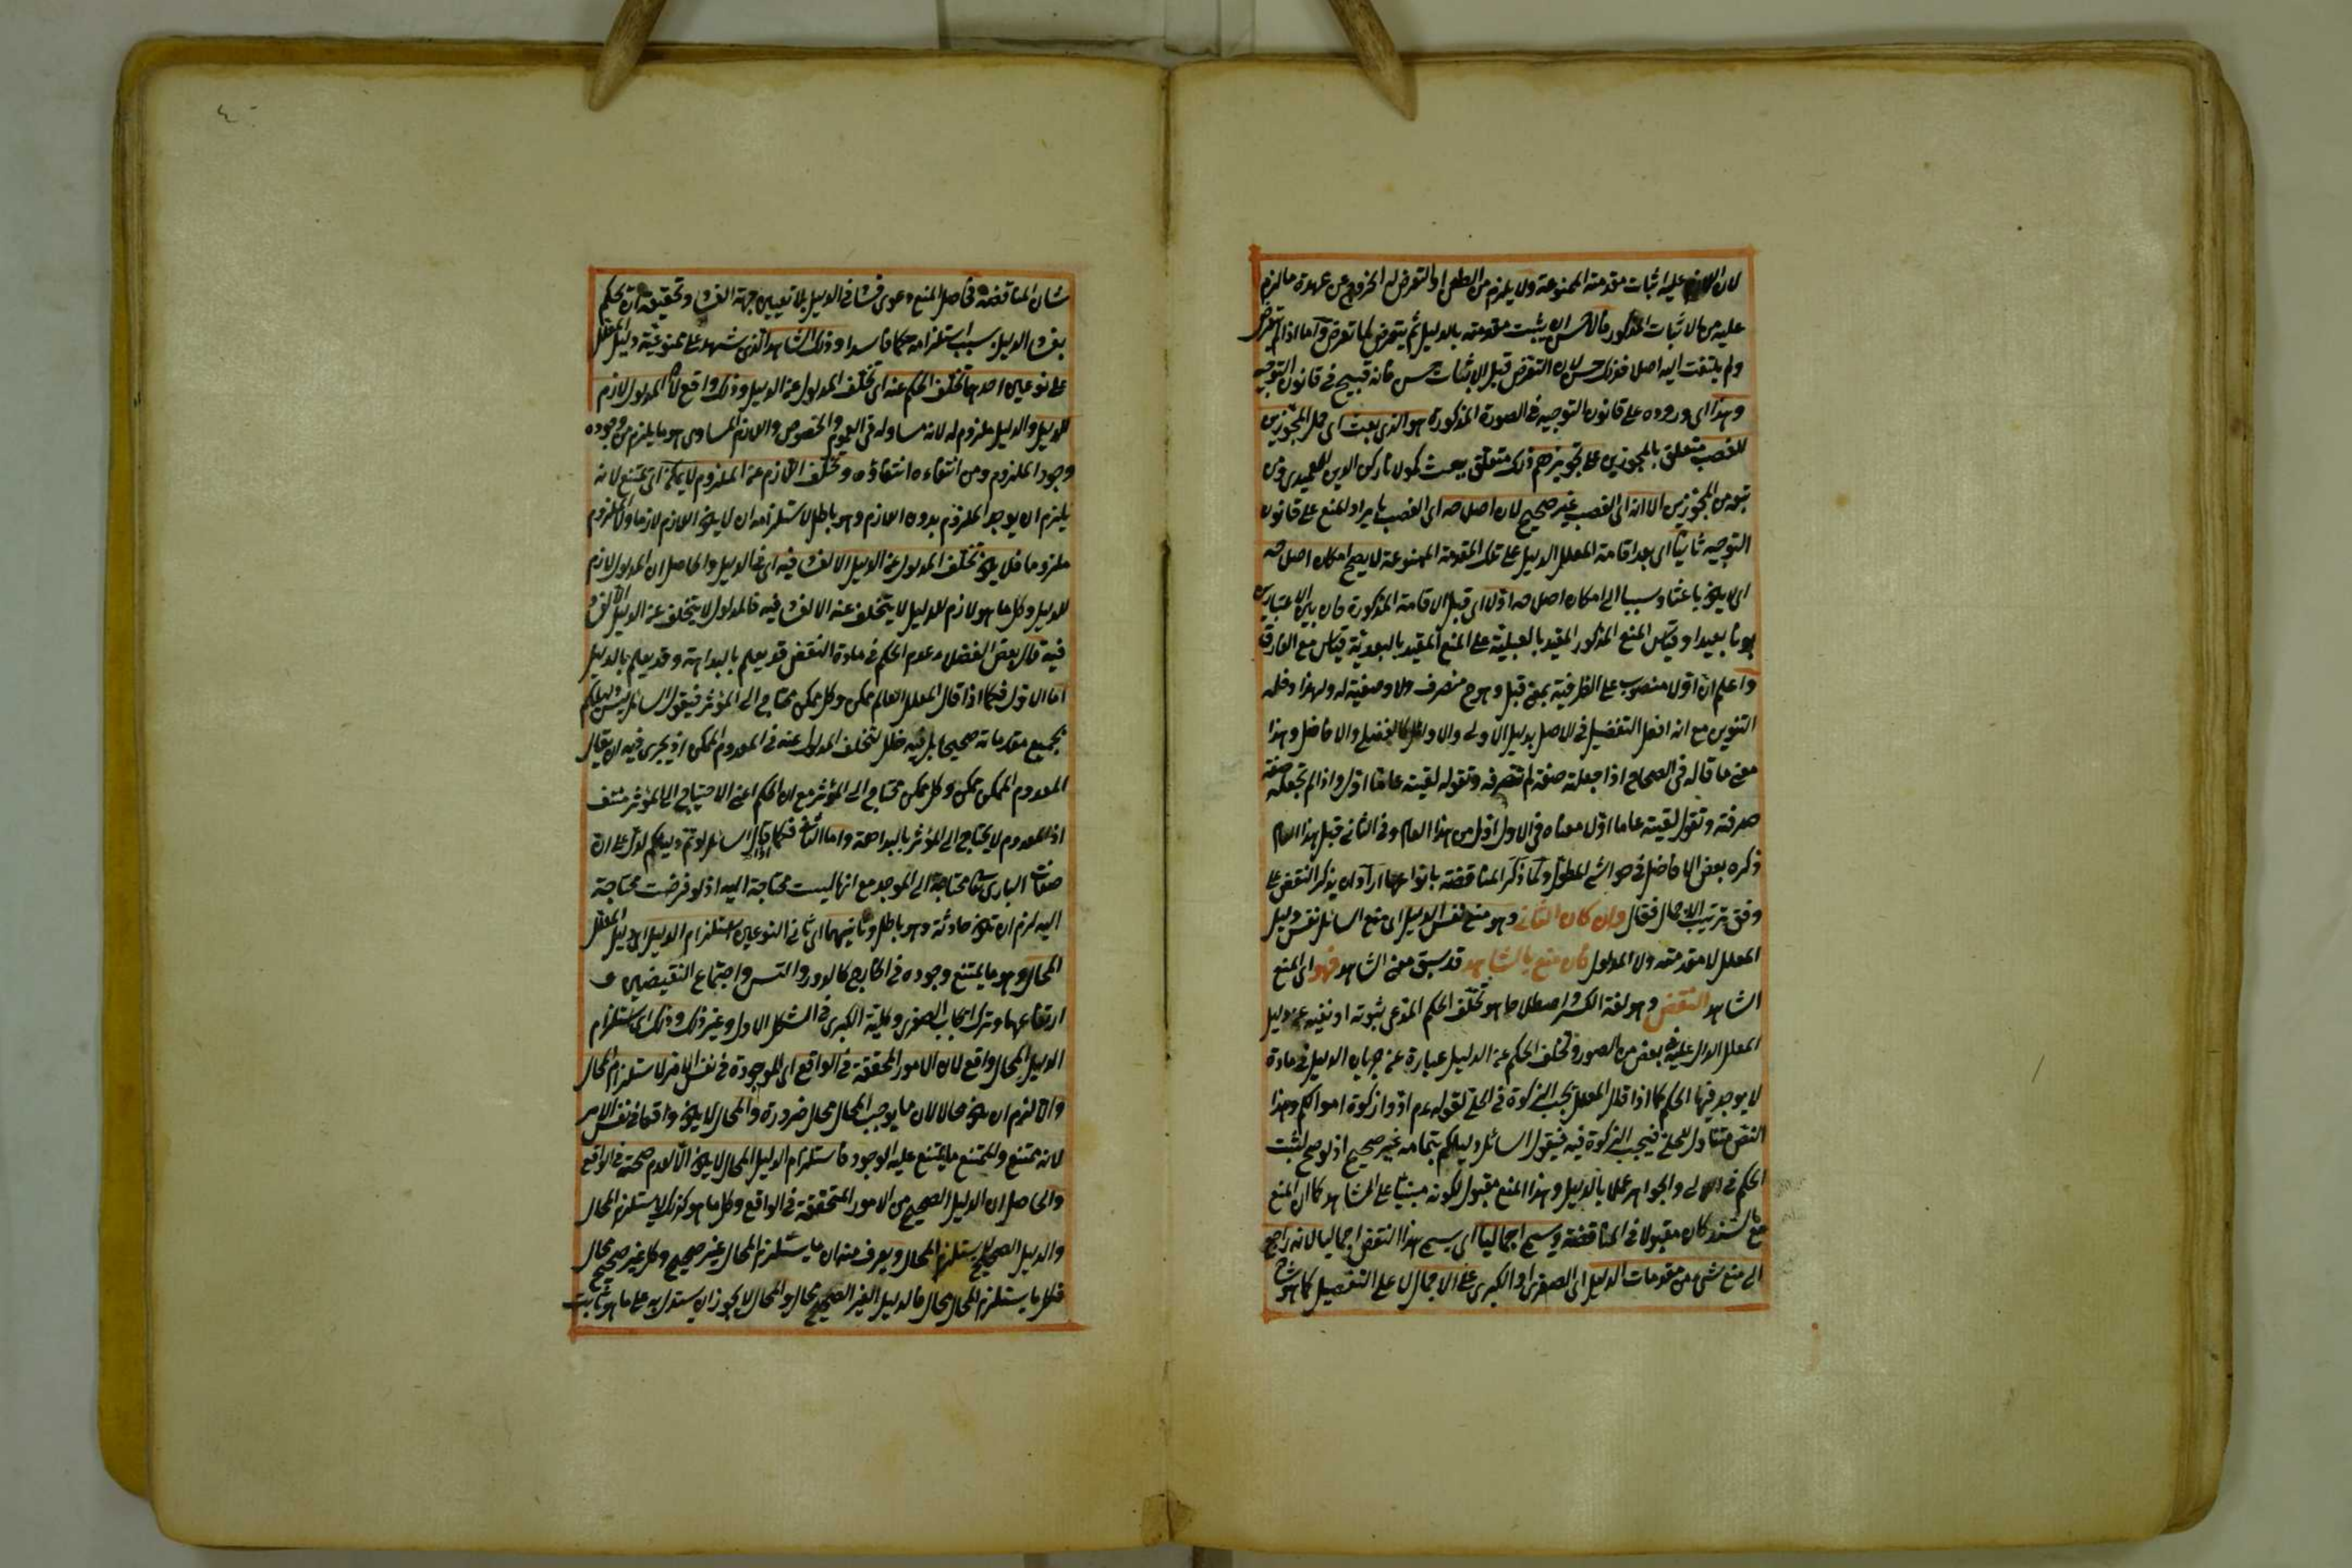 لان اللازم عليه اثبات مقدمته الممنوعة ولا يلزم من الطعن او التعرض له الخروج عن عهدة ما لزم
عليه من الاثبات المذكور فالاحسن ان يثبت مقدمته بالدليل ثم يتعرض لما تعرض واما اذا لم يتعرض
ولم يلتفت اليه اصلا فذلك حسن لان التعرض قبل الاثبات حسن فانه قبيح في قانون التوجيه
وهذا اى وروده على قانون التوجيه في الصورة المذكورة هو الذى بعث اى حمل المجوزين
للغصب متعلق بالمجوزين على تجويزهم ذلك متعلق ببعث كمولانا ركن الدين العميدى ومن
تبعه من المجوزين الا انه اى الغصب غير صحيح لان اصلاحه اى الغصب بايراد المنع على قانون
التوجيه ثانيا اى بعد اقامة المعلل الدليل على تلك المقدمة الممنوعة لا يصحح امكان اصلاحه
اى لا يكون باعثا وسببا الى امكان اصلاحه اولا اى قبل الاقامة المذكورة فان بين الاعتبارين
بونا بعيدا وقياس المنع المذكور المقيد بالقبلية على المنع المقيد بالبعدية قياس مع الفارق
واعلم ان اولا منصوب على الظرفية بمعنى قبل وهو ح منصرف ولا وصفية له ولهذا دخله
التنوين مع انه افعل التفضيل في الاصل بدليل الاولى والاوائل كالفضلى والافاضل وهذا
معنى ما قاله في الصحاح اذا جعلته صفة لم تصرفه وتقول لقيته عاما اول واذا لم تجعله صفة
صرفته وتقول لقيته عاما اولا معناه في الاول اول من هذا العام وفي الثانى قبل هذا العام
ذكره بعض الافاضل في حواشى المطول ولما ذكر المناقضة بانواعها اراد ان يذكر النقض على
وفق ترتيب الاجمال فقال وان كان الثانى وهو منع نفس الدليل اى منع السائل نفس دليل
المعلل لا مقدمته ولا المدلول فان منع بالشاهد قد سبق معنى الشاهد فهو اى المنع
الشاهد النقض وهو لغة الكسر واصطلاحا هو تخلف الحكم المدعى ثبوته او نفيه عن دليل
المعلل الدال عليه في بعض من الصور وتخلف الحكم عن الدليل عبارة عن جريان الدليل في مادة
لا يوجد فيها الحكم كما اذا قال المعلل تجب الزكوة في الحلى لقوله عم ادوا زكوة اموالكم وهذا
النص متناول للحلى فيجب الزكوة فيه فيقول السائل دليلكم بتمامه غير صحيح اذ لو صح لثبت
الحكم في اللآلى والجواهر عملا بالدليل وهذا المنع مقبول لكونه مبنيا على الشاهد كما ان المنع
مع السند كان مقبولا في المناقضة ويسمى اجماليا اى يسمى هذا النقض اجماليا لانه راجع
الى منع شىء من مقدمات الدليل اى الصغرى او الكبرى على الاجمال لا على التفصيل كما هو شان
شان المناقضة في اصل المنع دعوى فساد في الدليل بلا تعيين جهة الفساد وتحقيقه ان يحكم
بفساد الدليل بسبب استلزامه حكما فاسدا وذلك الشاهد الذى شهد على ممنوعية دليل المعلل
على نوعين احدهما تخلف الحكم عنه اى تخلف المدلول عن الدليل وذلك واقع لان المدلول لازم
للدليل والدليل ملزوم له لانه مساو له في العموم والخصوص واللازم المساوى هو ما يلزم من وجوده
وجود الملزوم ومن انتفاءه انتفاؤه وتخلف اللازم عن الملزوم لا يمكن اى يمتنع لانه
يلزم ان يوجد الملزوم بدون اللازم وهو باطل لاستلزامه ان لا يكون اللازم لازما والملزوم
ملزوما فلا يكون تخلف المدلول عن الدليل الا لفساد فيه اى في الدليل والحاصل ان المدلول لازم
للدليل وكل ما هو لازم للدليل لا يتخلف عنه الا لفساد فيه فالمدلول لا يتخلف عن الدليل الا لفساد
فيه قال بعض الفضلاء عدم الحكم في مادة النقض قد يعلم بالبداهة وقد يعلم بالدليل
اما الاول فكما اذا قال المعلل العالم ممكن وكل ممكن محتاج الى المؤثر فيقول السائل ليس دليلكم
بجميع مقدماته صحيحا بل فيه خلل لتخلف المدلول عنه في المعدوم الممكن اذ يجرى فيه ان يقال
المعدوم الممكن ممكن وكل ممكن محتاج الى المؤثر مع ان الحكم اعنى الاحتياج الى المؤثر منتف
اذ المعدوم لا يحتاج الى المؤثر بالبداهة واما الثانى فكما اذا قال السائل لو تم دليلكم لدل على ان
صفات البارى تعا محتاجة الى الموجد مع انها ليست محتاجة اليه اذ لو فرضت محتاجة
اليه لزم ان تكون حادثة وهو باطل وثانيهما اى ثانى النوعين استلزام الدليل اى دليل المعلل
المحال وهو ما يمتنع وجوده في الخارج كالدور والتس واجتماع النقيضين و
ارتفاعهما وترك ايجاب الصغرى وكلية الكبرى في الشكل الاول وغير ذلك وذلك اى استلزام
الدليل المحال واقع لان الامور المحققة في الواقع اى الموجودة في نفس الامر لا يستلزم المحال
والا لزم ان يكون محالا لان ما يوجب المحال محال ضرورة والمحال لا يكون واقعا في نفس الامر
لانه ممتنع والممتنع ما يمتنع عليه الوجود فاستلزام الدليل المحال لا يكون الا لعدم صحته في الواقع
والحاصل ان الدليل الصحيح من الامور المتحققة في الواقع وكل ما هو كذلك لا يستلزم المحال
والدليل الصحيح لا يستلزم المحال ويعرف منه ان ما يستلزم المحال غير صحيح وكل غير صحيح محال
فكل ما يستلزم المحال محال فالدليل الغير الصحيح محال والمحال لا يجوز ان يستدل به على ما هو ثابت